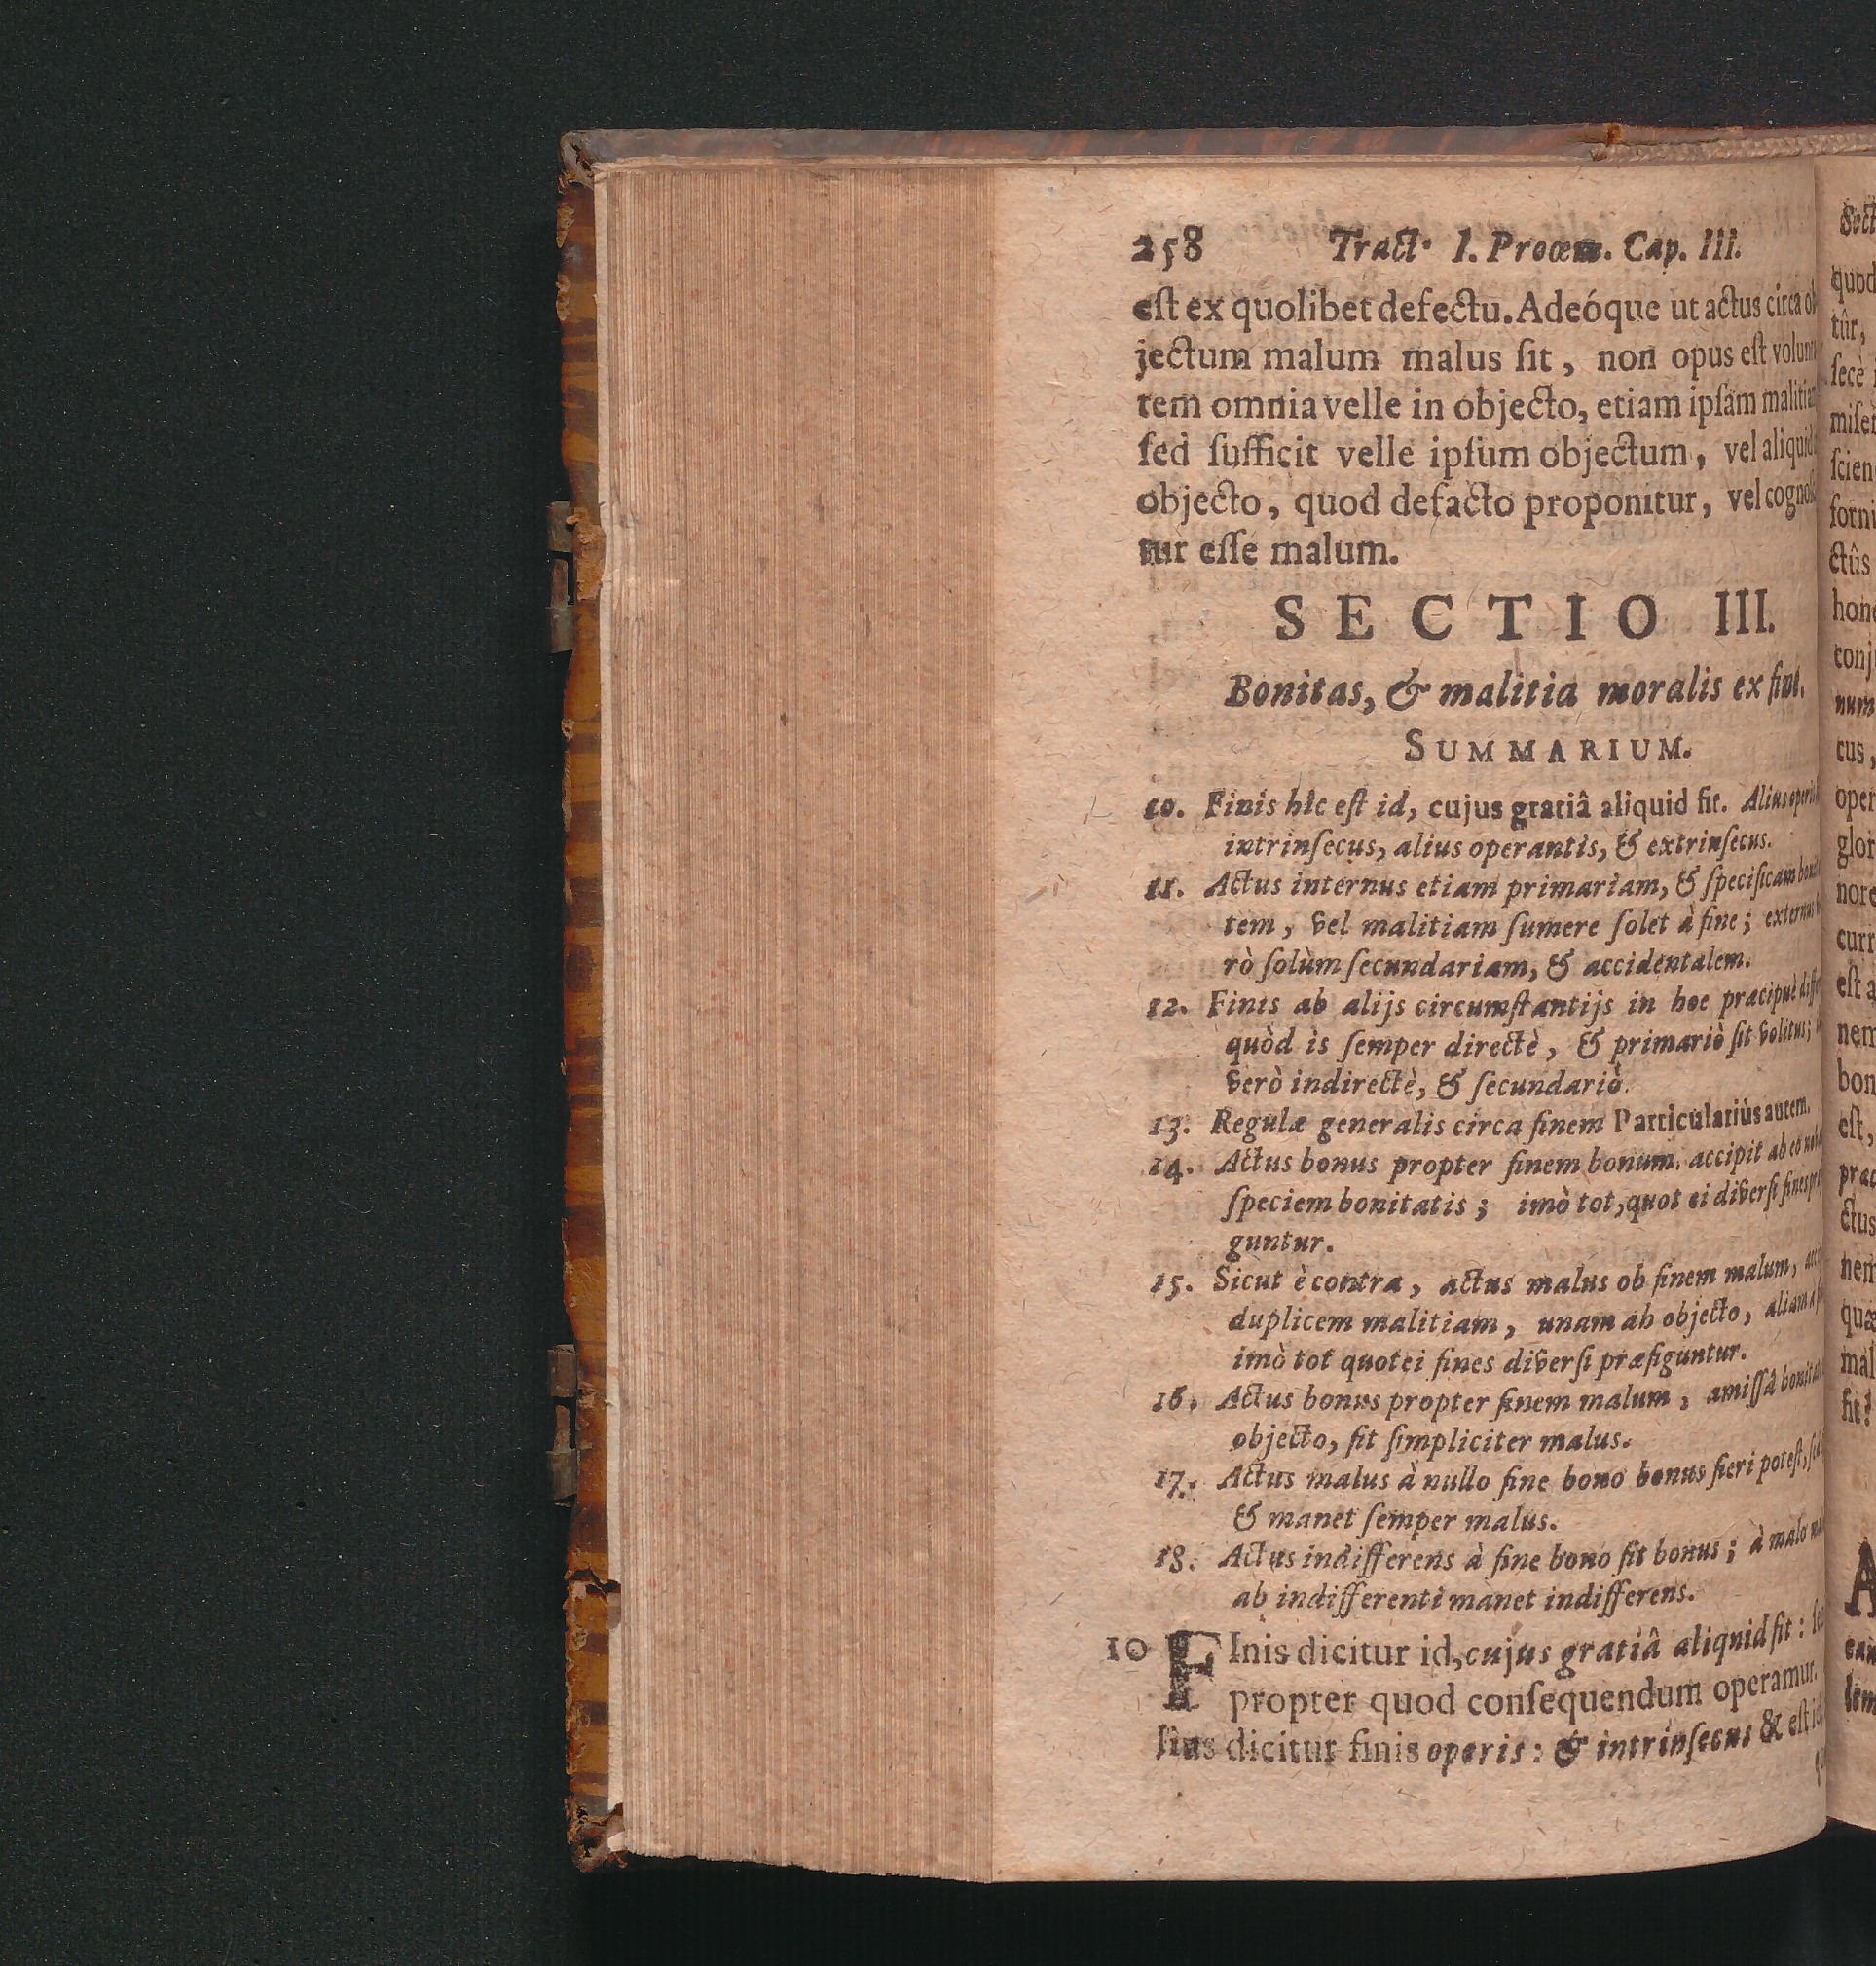 258 Tract. I. Proœm. Cap. III.
eſt ex quolibet defectu. Adeóque ut actus circa ob
jectum malum malus ſit, non opus eſt volun
tem omnia velle in objecto, etiam ipſam malitiam
ſed ſufficit velle ipſum objectum, vel aliquid
objecto, quod defacto proponitur, vel cognoſ
tur eſſe malum.
SECTIO III.
Bonitas, & malitia moralis ex fine.
SUMMARIUM.
10. Finis hîc eſt id, cujus gratiâ aliquid fit. Alius operis
intrinſecus, alius operantis, & extrinſecus.
11. Actus internus etiam primariam, & ſpecificam boni
tem, vel malitiam ſumere ſolet à fine; externus
rò ſolùm ſecundariam, & accidentalem.
12. Finis ab alijs circumſtantijs in hoc præcipuè diff
quòd is ſemper directè, & primariò ſit volitus;
verò indirectè, & ſecundariò.
13. Regulæ generalis circa finem Particulariùs autem.
14. Actus bonus propter finem bonum, accipit ab eo
ſpeciem bonitatis; imò tot, quot ei diverſi fines
guntur.
15. Sicut è contra, actus malus ob finem malum,
duplicem malitiam, unam ab objecto, aliam
imò tot quot ei fines diverſi præfiguntur.
16. Actus bonus propter finem malum, amiſſâ
objecto, fit ſimpliciter malus.
17. Actus malus à nullo fine bono bonus fieri poteſt,
& manet ſemper malus.
18. Actus indifferens à fine bono fit bonus; à malo
ab indifferenti manet indifferens.
10 FInis dicitur id, cujus gratiâ aliquid fit:
propter quod conſequendum operamur.
lius dicitur finis operis: & intrinſecus & eſt
Sect
quod
tûr,
ſecè
miſer
ſcien
forni
ctûs
hone
conj
num
cus,
oper
glor
nore
curr
eſt a
nem
bon
eſt,
præc
ctus
nem
quæ
mal
fit?
A